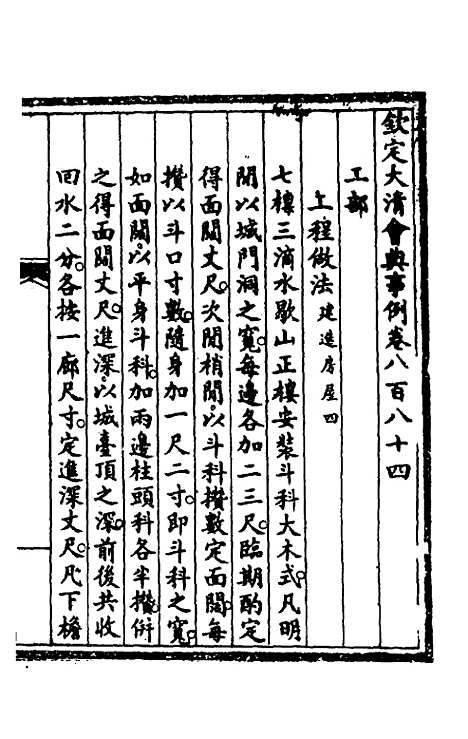 欽定大清會典事例卷八百八十四
工部
工程做法建造房屋四
七檁三滴水歇山正樓安裝斗科大木式。凡明
間以城門洞之寬。每邊各加二三尺。臨期酌定
得面闊丈尺。次間梢間。以斗科攢數定面闊。每
攢以斗口寸數。隨身加一尺二寸。即斗科之寬。
如面闊。以平身斗科。加兩邊柱頭科各半攢。併
之得面闊丈尺。進深。以城臺頂之深。前後共收
回水二分。各按一廊尺寸。定進深丈尺。凡下檐